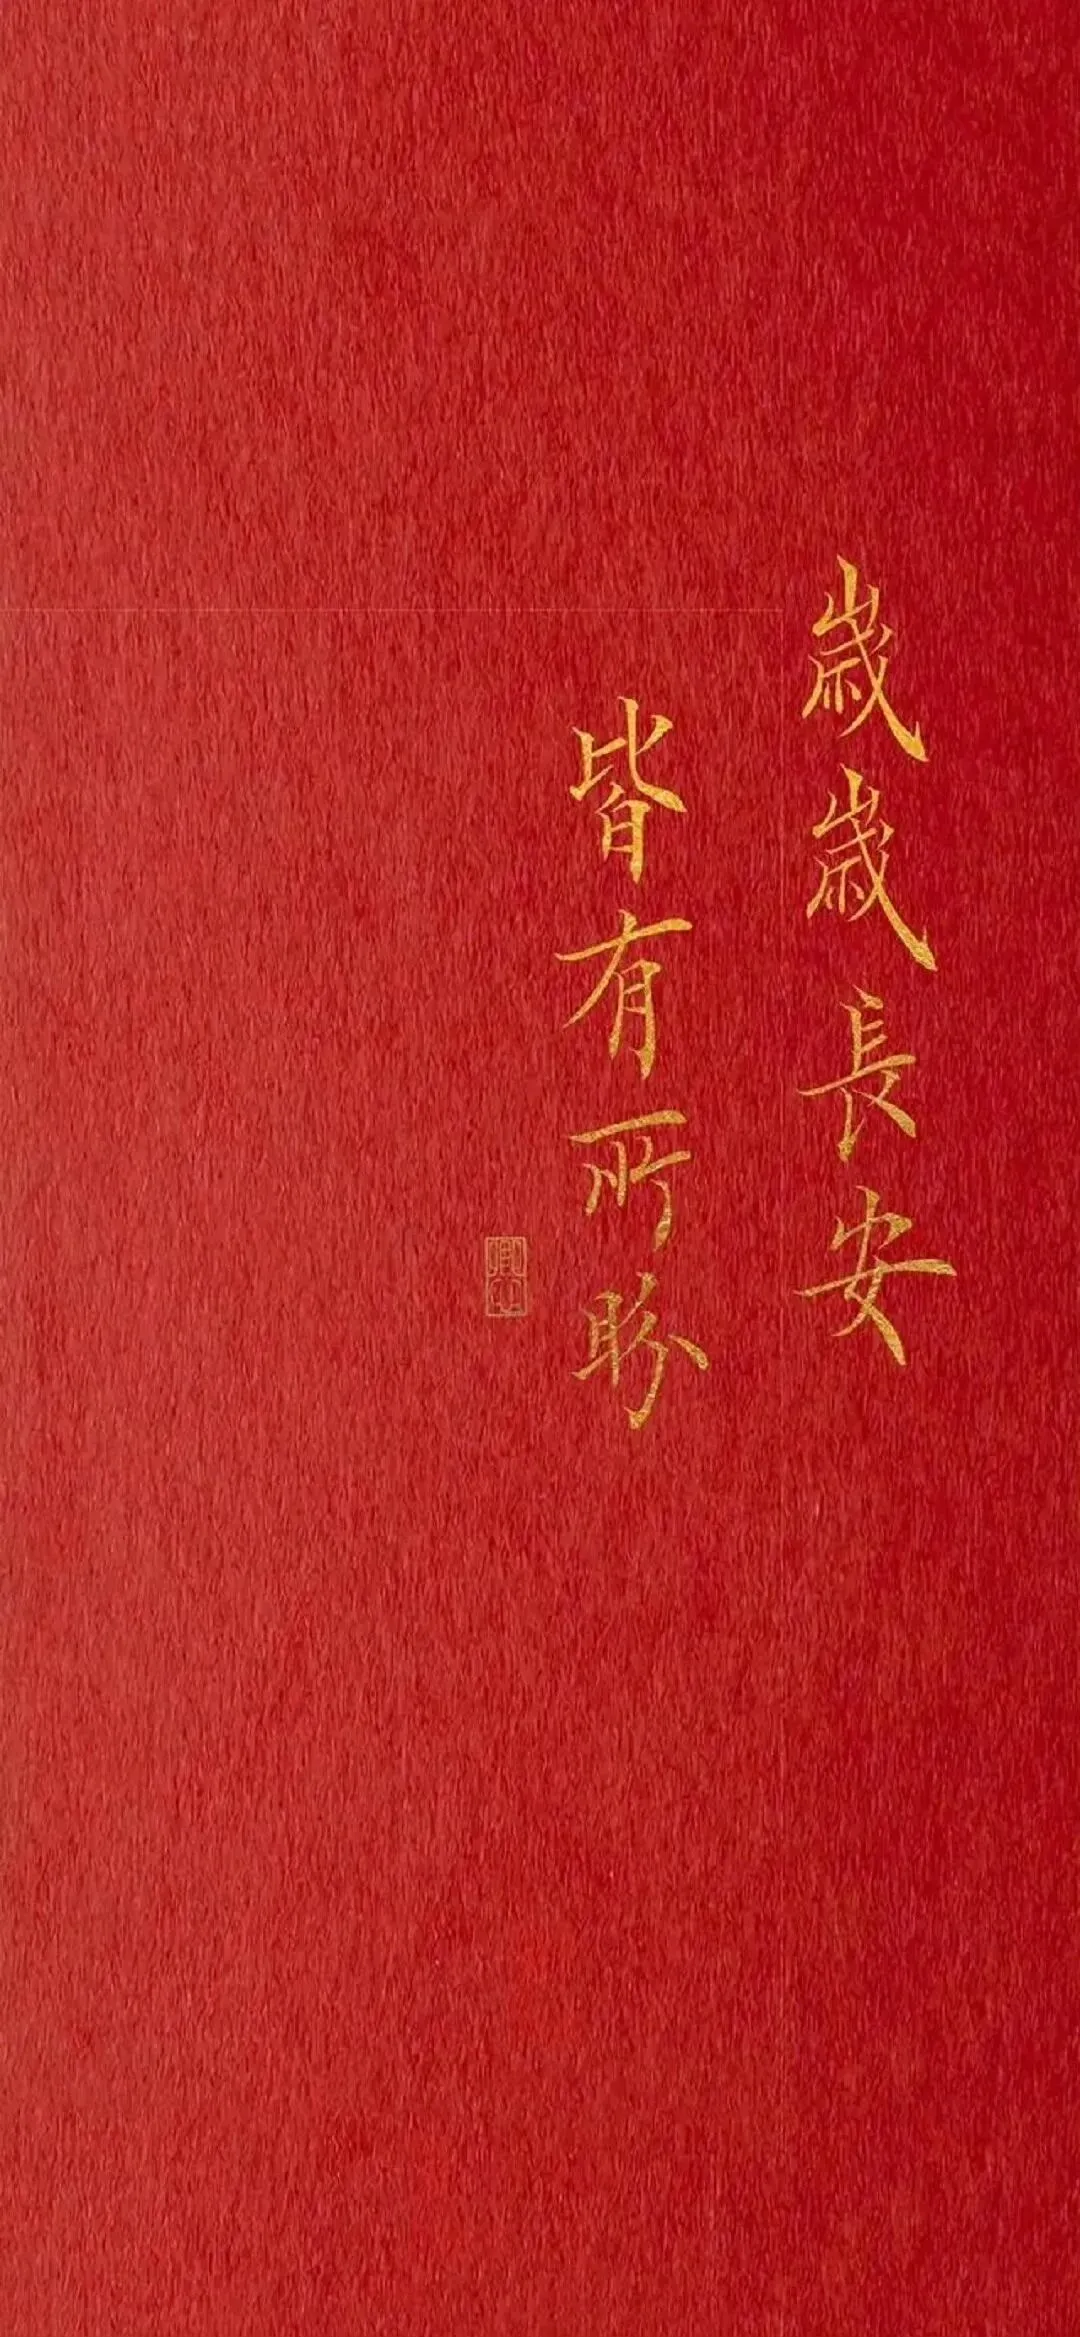 歲歲長安
皆有所盼